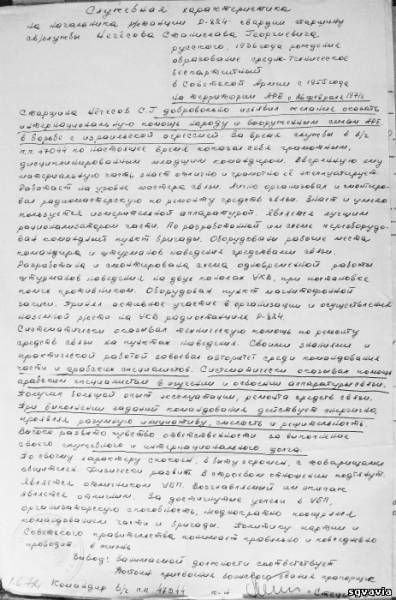 Служебная характеристика
на начальника р/станции Р-824 гвардии старшину
св/службы Чечесова Станислава Георгиевича
русского, 1936 года рождения
образование средне-техническое
беспартийный
в Советской Армии с 1955 года
на территории АРЕ с февраля 1971
Старшина Чечесов С.Г. добровольно изъявил желание оказать
интернациональную помощь народу и вооруженным силам АРЕ
в борьбе с израилевской агрессией. За время службы в в/ч
пп 47044 по настоящее время показал себя грамотным,
дисциплинированным младшим командиром. Вверенную ему
материальную часть знает отлично и грамотно её эксплуатирует.
Работает на уровне мастера связи. Лично организовал и смонтиро-
вал радиомастерскую по ремонту средств связи. Знает и умело
пользуется измерительной аппаратурой. Является лучшим
рационализатором части. По разработанной им схеме переоборудо-
ван командный пункт бригады. Оборудованы рабочие места
командира и штурманов наведения средствами связи.
Разработана и смонтирована схема одновременной работы
штурманов наведения на двух каналах УКВ, при постановке
помех противником. Оборудован пункт магнитофонной
записи. Принял активное участие в организации и осуществлении
наземной связи на УКВ радиостанциях Р-824.
Систематически оказывал техническую помощь по ремонту
средств связи на пунктах наведения. Своими знаниями и
практической работой завоевал авторитет среди командования
части и арабских специалистов. Систематически оказывал помощь
арабским специалистам в изучении и освоении аппаратуры связи.
Получил большой опыт эксплуатации, ремонта средств связи.
При выполнении заданий командования действует энергично,
проявляя разумную инициативу, смелость и решительность.
Высоко развито чувство ответственности за выполнение
своего служебного и интернационального долга.
По своему характеру спокоен, в быту скромен, с товарищами
общителен. Физически развит, в строевом отношении подтянут.
Является отличником УБП. Возглавляемый им экипаж
является отличным. За достигнутые успехи в УБП,
организаторскую способность, неоднократно поощрялся
командованием части и бригады. Политику партии и
Советского правительства понимает правильно и повседневно
проводит в жизнь
Вывод: Занимаемой должности соответствует
присвоения воинского звания прапорщик
Командир в/ч пп 47044 п-к
sgvavia